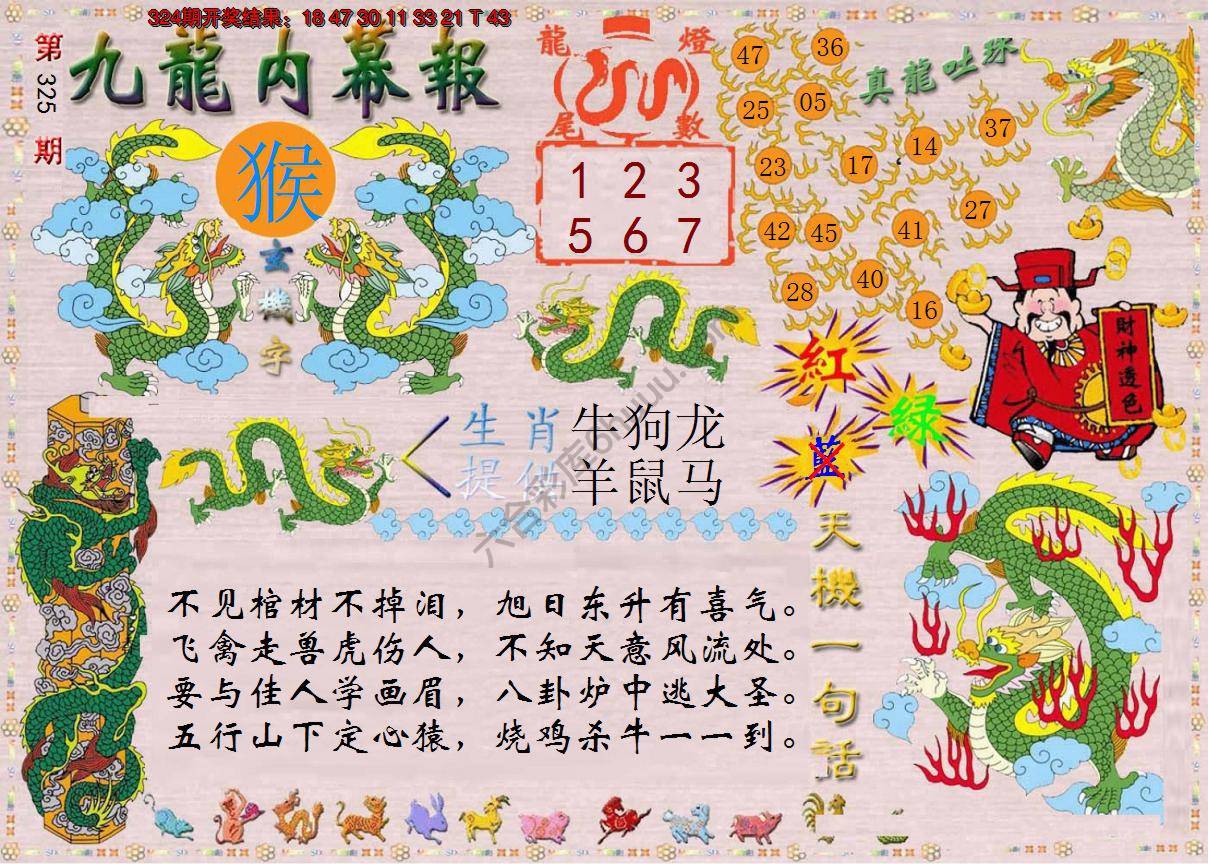 324期开奖结果：18 47 30 11 33 21 T 43
第
325
期
九龍内幕報
猴
玄
機
字
龍 燈
尾 數
1 2 3
5 6 7
真龍吐珠
47
36
25
05
23
17
14
37
42
45
41
27
28
40
16
財神透色
紅
綠
藍
生肖 牛狗龙
提供 羊鼠马
天機一句話
不见棺材不掉泪，旭日东升有喜气。
飞禽走兽虎伤人，不知天意风流处。
要与佳人学画眉，八卦炉中逃大圣。
五行山下定心猿，烧鸡杀牛一一到。